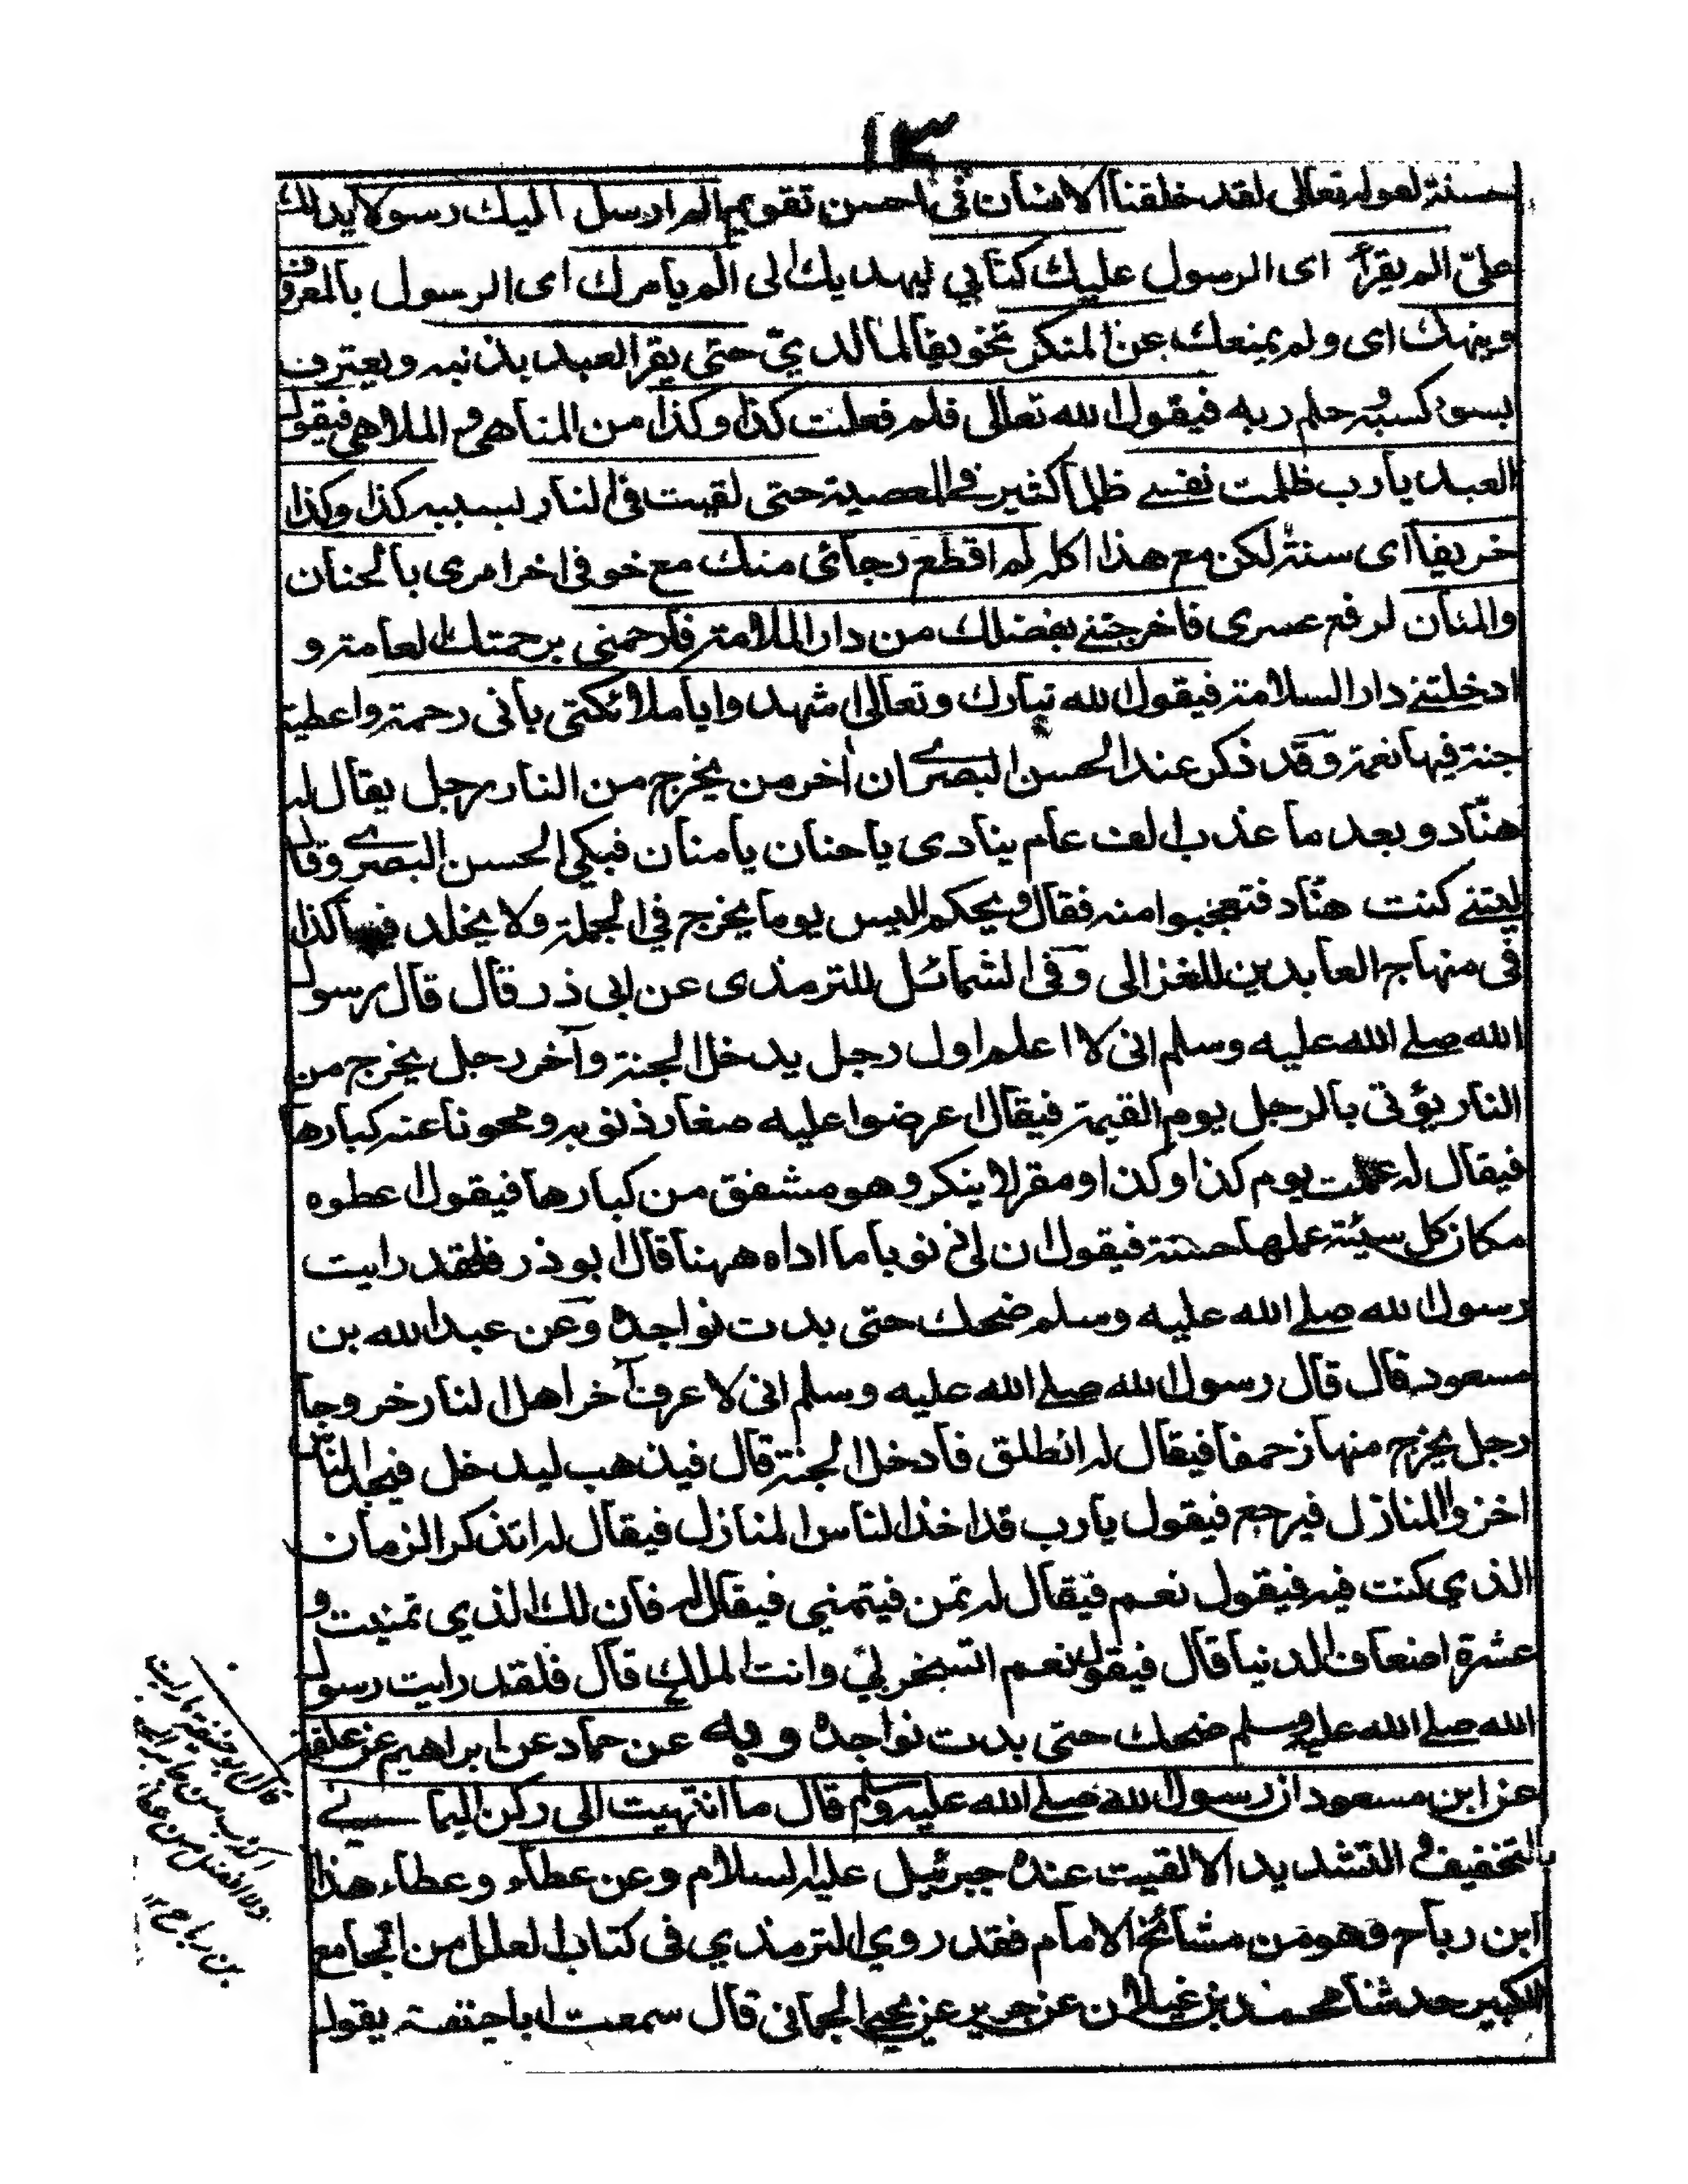 ١٣
حسنة لقوله تعالى لقد خلقنا الانسان فى احسن تقويم الم ارسل اليك رسولا يدلك
علىّ الم يقرأ اى الرسول عليك كتابي ليهديك الى الم يامرك اى الرسول بالمعروف
وينهك اى ولم يمنعك عن المنكر تخويفا لما لديّ حتى يقر العبد بذنبه ويعترف
بسوء كسبه وحلم ربه فيقول الله تعالى فلم فعلت كذا وكذا من المناهى والملاهى فيقول
العبد يارب ظلمت نفسے ظلما كثير فے المعصية حتى لقيت فى النار بسببه كذا وكذا
خريفا اى سنة لكن مع هذا كله لم اقطع رجائى منك مع خوفى اخر امرى بالحنان
والمنان لرفع عسرى فاخرجتنے بفضلك من دار الملامة فارحمنى برحمتك العامة و
ادخلتنے دار السلامة فيقول الله تبارك وتعالى اشهدوا ياملائكتى بانى رحمة واعطية
جنة فيها نعمة وقد ذكر عند الحسن البصرے ان اخر من يخرج من النار رجل يقال له
هنّاد وبعد ما عذب الف عام ينادى يا حنان يا منان فبكى الحسن البصرے وقال
ليتنے كنت هنّاد فتعجبوا منه فقال ويحكم اليس يوما يخرج في الجملة ولا يخلد فيها كذا
فى منهاج العابدين للغزالى وفى الشمائل للترمذى عن ابى ذر قال قال رسول
الله صلے الله عليه وسلم انى لا اعلم اول رجل يدخل الجنة وآخر رجل يخرج من
النار يؤتى بالرجل يوم القيمة فيقال اعرضوا عليه صغار ذنوبه ومحونا عنه كبارها
فيقال له عملت يوم كذا وكذا ومقر لا ينكر وهو مشفق من كبارها فيقول اعطوه
مكان كل سيئة عملها حسنة فيقول ان لى ذنوبا ما اداه ههنا قال ابو ذر فلقد رايت
رسول الله صلے الله عليه وسلم ضحك حتى بدت نواجذه وعن عبد الله بن
مسعود قال قال رسول الله صلے الله عليه وسلم انى لا عرف آخر اهل النار خروجا
رجل يخرج منها زحفا فيقال له انطلق فادخل الجنة قال فيذهب ليدخل فيجد الناس
اخذوا المنازل فيرجع فيقول يارب قد اخذ الناس المنازل فيقال له اتذكر الزمان
الذي كنت فيه فيقول نعم فيقال له تمن فيتمنى فيقال له فان لك الذي تمنيت و
عشرة اضعاف الدنيا قال فيقول نعم اتسخر بي وانت الملك قال فلقد رايت رسول
الله صلے الله عليه وسلم ضحك حتى بدت نواجذه وبه عن حماد عن ابراهيم عن علقمة
عن ابن مسعود ان رسول الله صلے الله عليه وسلم قال ما انتهيت الى ركن اليمانے
بالتخفيف والتشديد الا لقيت عنده جبرئيل عليه السلام وعن عطاء وعطاء هذا
ابن رباح وهو من مشائخ الامام فقد روي الترمذي فى كتاب العلل من الجامع
الكبير حدثنا محمد بن غيلان عن جرير عن يحيے الحمانى قال سمعت ابا حنيفة يقول
قال ابو حنيفة ما رايت
اكذب من جابر
ولا افضل من عطاء
بن رباح ١٢